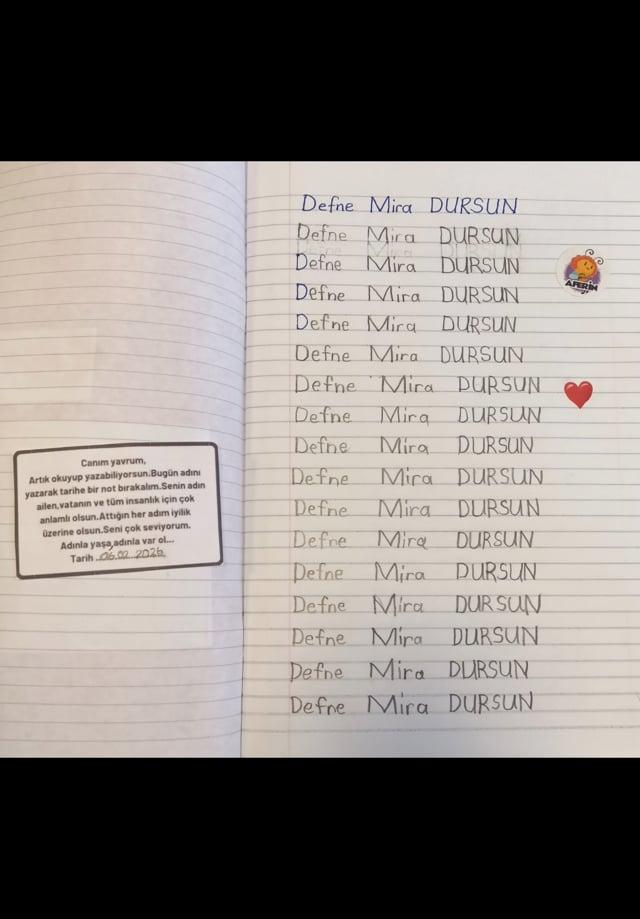 Canım yavrum,
Artık okuyup yazabiliyorsun.Bugün adını
yazarak tarihe bir not bırakalım.Senin adın
ailen,vatanın ve tüm insanlık için çok
anlamlı olsun.Attığın her adım iyilik
üzerine olsun.Seni çok seviyorum.
Adınla yaşa,adınla var ol...
Tarih 06.02.2026
Defne Mira DURSUN
Defne Mira DURSUN
Defne Mira DURSUN
Defne Mira DURSUN
Defne Mira DURSUN
Defne Mira DURSUN
Defne Mira DURSUN
Defne Mira DURSUN
Defne Mira DURSUN
Defne Mira DURSUN
Defne Mira DURSUN
Defne Mira DURSUN
Defne Mira DURSUN
Defne Mira DURSUN
Defne Mira DURSUN
Defne Mira DURSUN
Defne Mira DURSUN
AFERİN